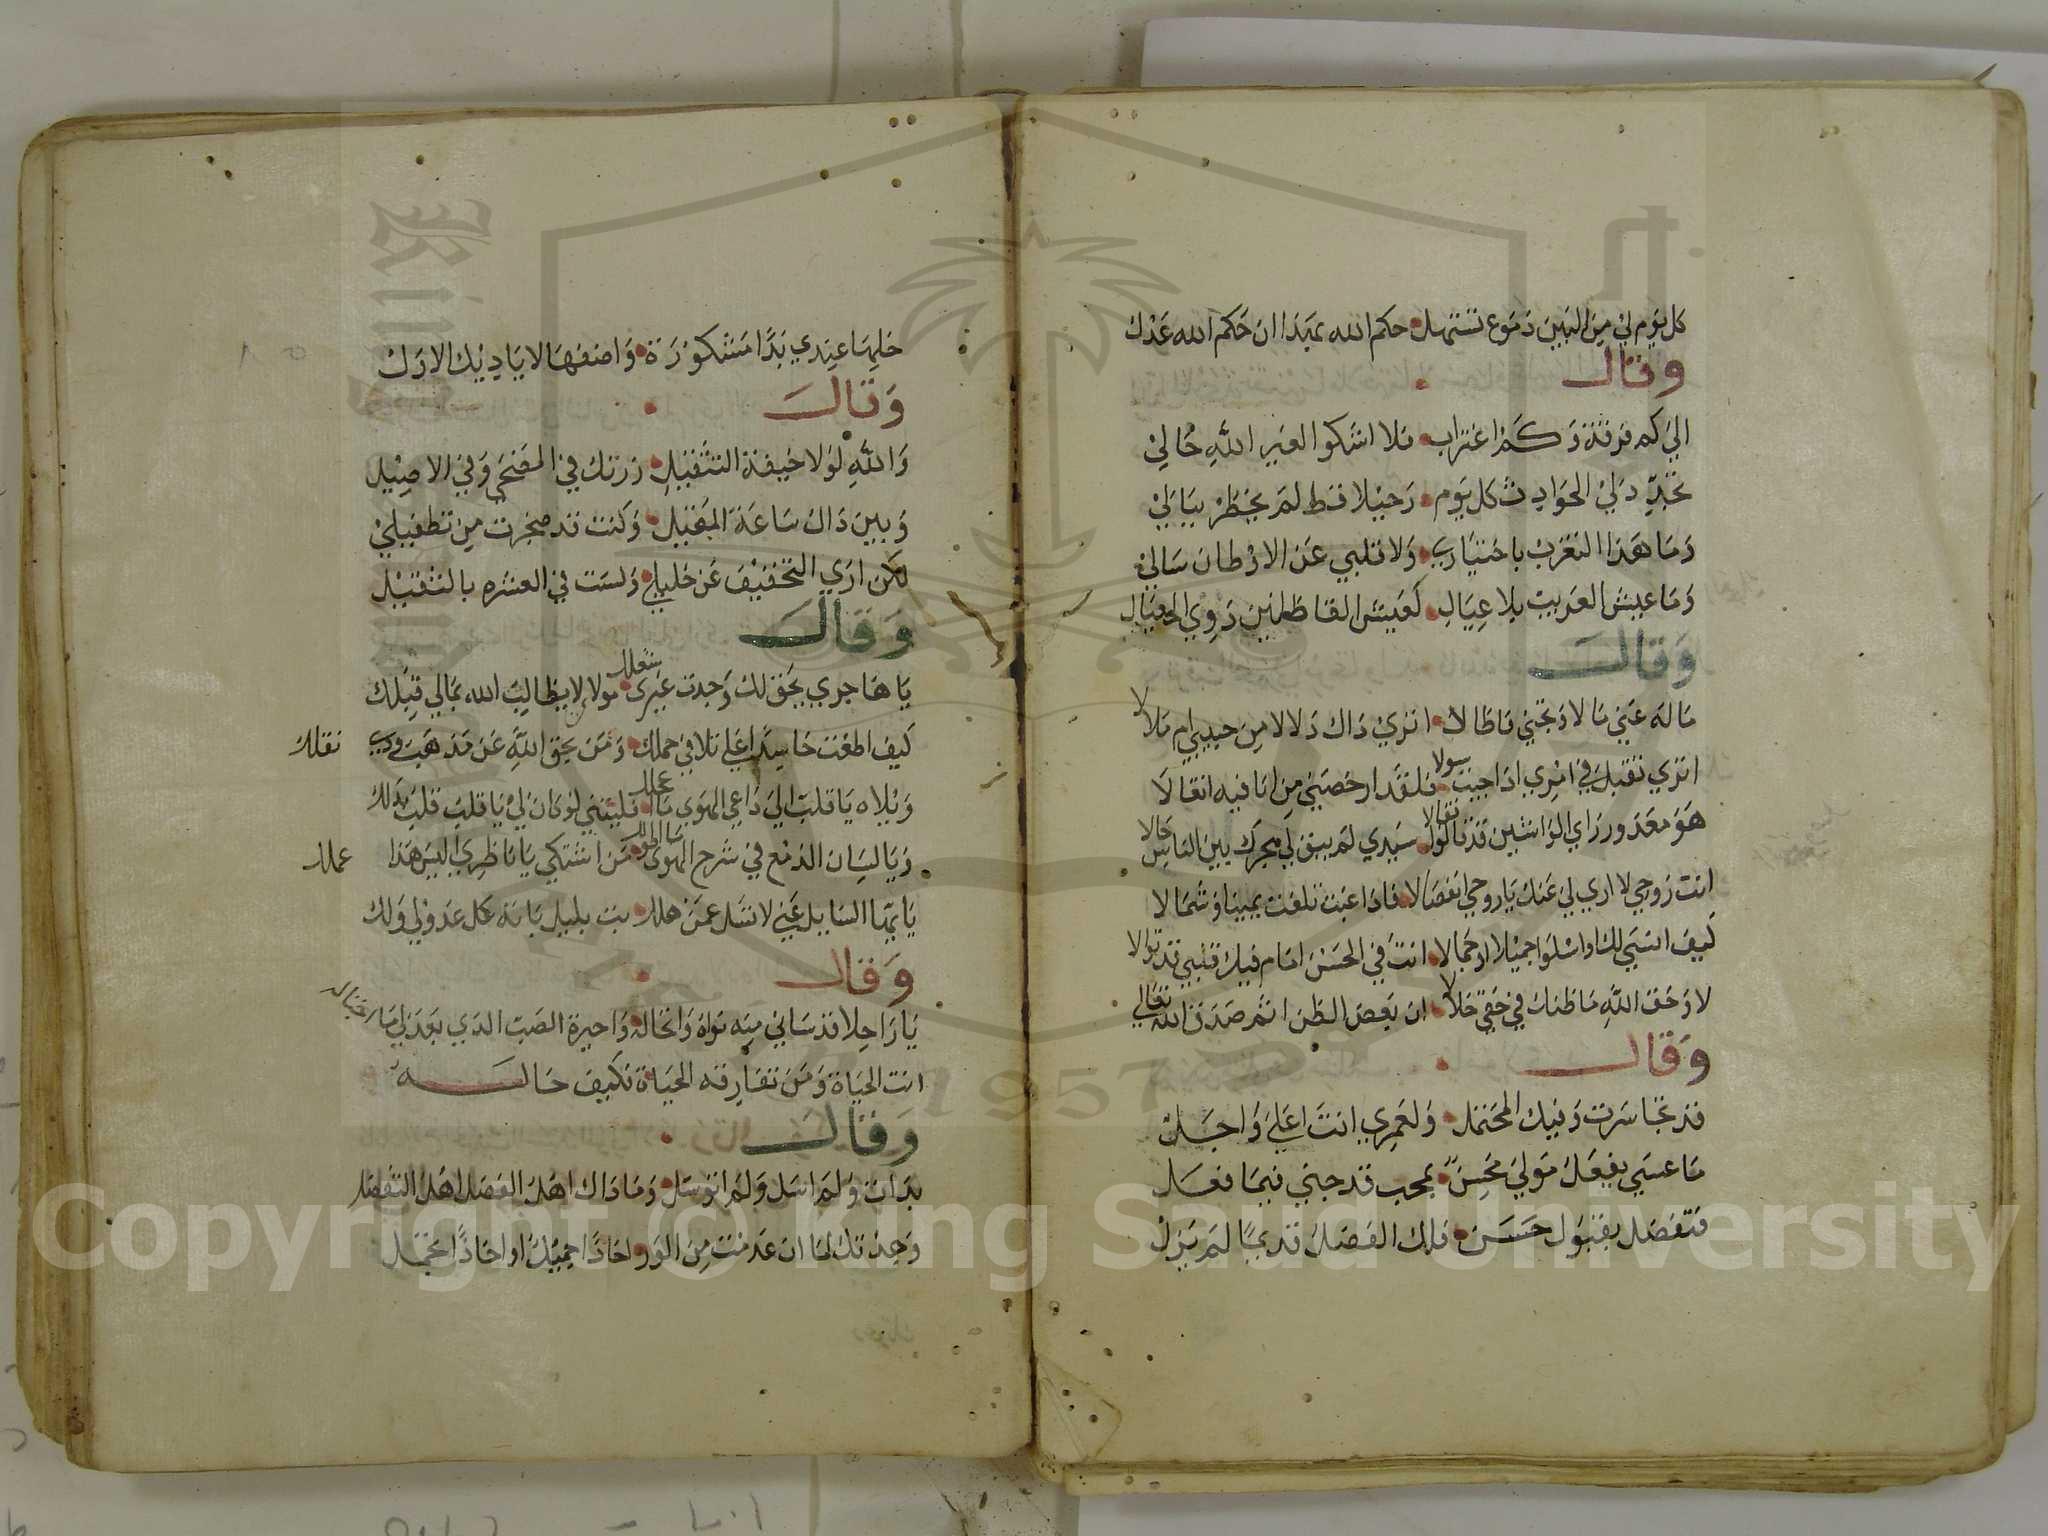 كل يوم لي من البين دموع تستهل حكم الله بهذا ان حكم الله عدل
وقال
الى كم فرقة وكم اغتراب فلا اشكوا لغير الله حالي
تجدد لي الحوادث كل يوم رحيلا قط لم يخطر ببالي
وما هذا التغرب باختياري ولا قلبي عن الاوطان سالي
وما عيش الغريب بلا عيال كعيش القاطنين ذوي العيال
وقال
ما له عني مالا وتجني فاطالا اترى ذاك دلالا من حبيبي ام ملالا
اترى تقبل في امري اذا جيت سولا فلقد ارخصني من انا فيه اتغالا
هو معذور راي الواشين قد قالوا فقالا سيدي لم يبق لي هجرك بين الناس حالا
انت روحي لا ارى لي عنك يا روحي انفصالا فاذا غبت تلفت يمينا وشمالا
كيف انسى لك او اسلوا جميلا او جمالا انت في الحسن امام فيك قلبي قد توالا
لا وحق الله ما ظنك في حقي حلالا ان بعض الظن اثم صدق الله تعالى
وقال
قد تجاسرت وفيك المحتمل ولعمري انت اعلى واجل
ما عسى يفعل مولى محسن بمحب قد جنى فيما فعل
فتفضل بقبول حسن فلك الفضل قديما لم يزل
خلها عندي يدا مشكورة واضفها لاياديك الاول
وقال
والله لولا خيفة التثقيل زرتك في الضحى وفي الاصيل
وبين ذاك ساعة المقيل وكنت قد ضجرت من تطفيلي
لكن ارى التخفيف عن خليلي ولست في العشره بالثقيل
وقال
يا هاجري يحق لك وجدت غيري شغلك مولاي لا يطالب الله بمالي قبلك
كيف اطعت حاسدا علي تلافي حملك ومن يحق الله عن مذهب ودي
نقلك
ويلاه يا قلب الى داعي الهوى ما عجلك فليتني لو كان لي يا قلب قلب بدلك
ويا لسان الدمع في شرح الهوى ما اطولك من اشتكى يا ناظري اليس هذا
عملك
يا ايها السايل عني لا تسل عمن هلك بت بليل باته كل عدو لي ولك
وقال
يا راحلا قد ساني منه نواه وانتحاله واحيرة الصب الذي بعدك ما رحتاله
انت الحياة ومن تفارقه الحياة فكيف حاله
وقال
بدات ولم اسل ولم اتوسل وما ذاك اهل الفضل اهل التفضل
وجدتك لما ان عدمت من الورى اخا ذا جميل او اخا ذا تجمل
Copyright © King Saud University
1957